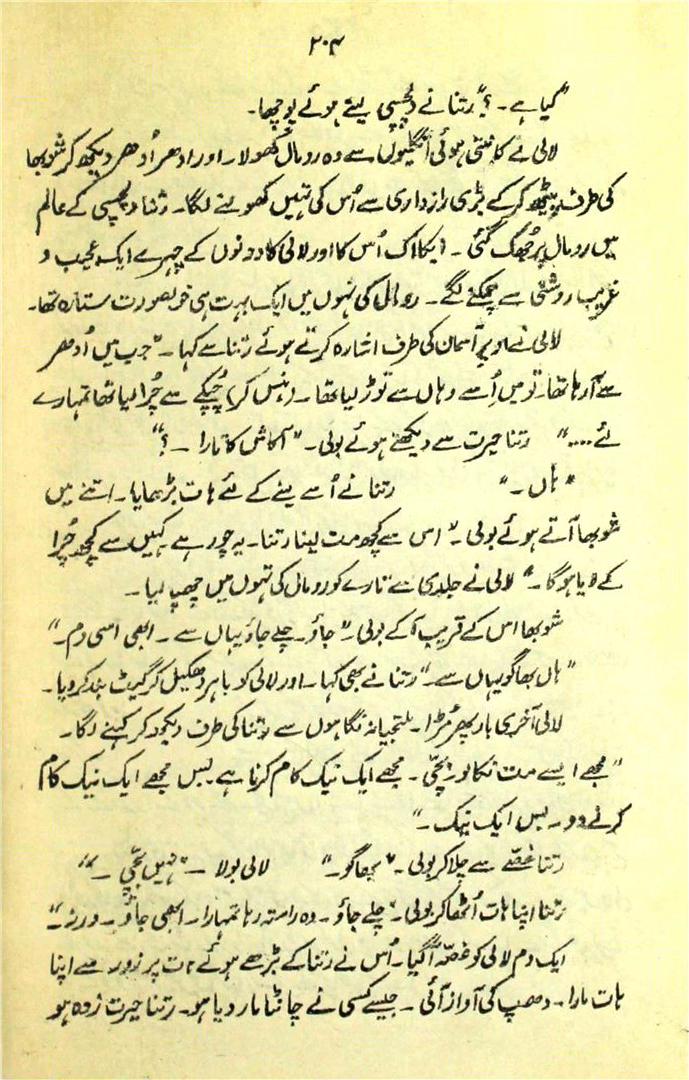 ۲۰۴
"کیا ہے ۔ ؟" رتنا نے دلچسپی لیتے ہوئے پوچھا۔
لالی نے کانپتی ہوئی انگلیوں سے وہ رومال کھولا۔ اور ادھر اُدھر دیکھ کر شوبھا
کی طرف پیٹھ کر کے بڑی رازداری سے اُس کی تہیں کھولنے لگا۔ رتنا دلچسپی کے عالم
میں رومال پر جھک گئی ۔ ایکا اک اُس کا اور لالی کا دونوں کے چہرے ایک عجیب و
غریب روشنی سے چمکنے لگے۔ رومال کی تہوں میں ایک بہت ہی خوبصورت ستارہ تھا۔
لالی نے اوپر آسمان کی طرف اشارہ کرتے ہوئے رتنا سے کہا۔ "جب میں اُدھر
سے آ رہا تھا۔ تو میں اُسے وہاں سے توڑ لیا تھا۔ (ہنس کر) چپکے سے چُرا لیا تھا تمہارے
لئے ...." رتنا حیرت سے دیکھتے ہوئے بولی۔ "آکاش کا تارا ۔ ؟"
"ہاں ۔" رتنا نے اُسے لینے کے لئے ہات بڑھایا۔ اتنے میں
شوبھا آتے ہوئے بولی ۔ "اس سے کچھ مت لینا رتنا۔ یہ چور ہے کہیں سے کچھ چُرا
کے لایا ہو گا ۔" لالی نے جلدی سے تارے کو رومال کی تہوں میں چھپا لیا ۔
شوبھا اس کے قریب آ کے بولی۔ "جاؤ۔ چلے جاؤ یہاں سے ۔ ابھی اسی دم ۔"
"ہاں بھاگو یہاں سے۔" رتنا نے بھی کہا۔ اور لالی کو باہر دھکیل کر گیٹ بند کر دیا۔
لالی آخری بار پھر مُڑا۔ ملتجیانہ نگاہوں سے رتنا کی طرف دیکھ کر کہنے لگا۔
"مجھے ایسے مت نکالو بچّی ۔ مجھے ایک نیک کام کرنا ہے بس مجھے ایک نیک کام
کرنے دو۔ بس ایک نیک ۔"
رتنا غصّے سے چلا کر بولی۔ "بھاگو۔" لالی بولا ۔ "نہیں بچّی ۔"
رتنا اپنا ہات اُٹھا کر بولی۔ "چلے جاؤ ۔ وہ راستہ رہا تمہارا۔ ابھی جاؤ۔ ورنہ۔"
ایک دم لالی کو غصّہ آ گیا۔ اُس نے رتنا کے بڑھے ہوئے ہات پر زور سے اپنا
ہات مارا۔ دھپ کی آواز آئی۔ جیسے کسی نے چانٹا مار دیا ہو۔ رتنا حیرت زدہ ہو